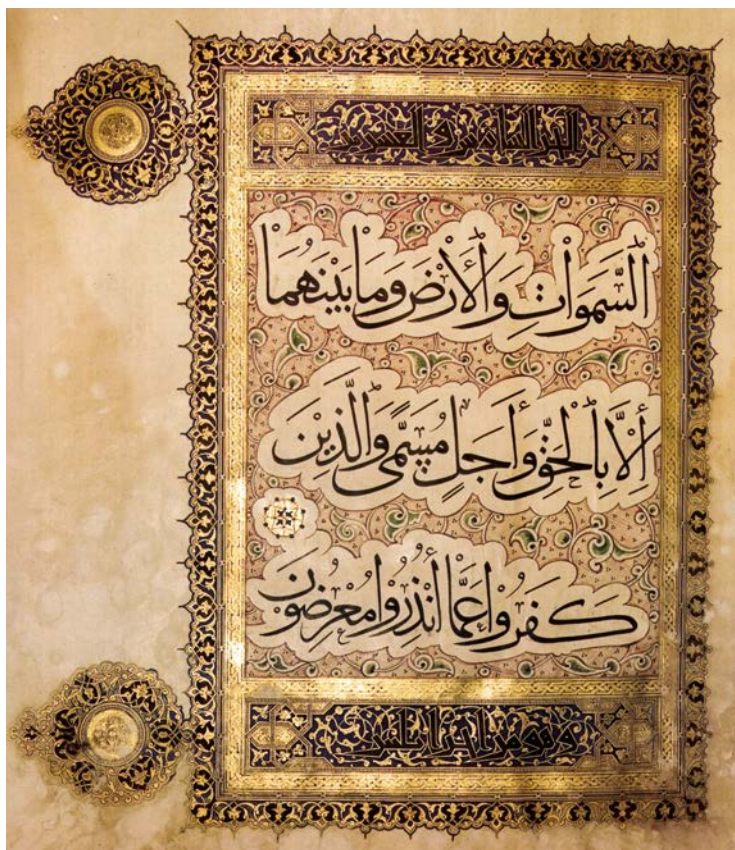 السَّمَوَاتِ وَالْأَرْضَ وَمَا بَيْنَهُمَا
أِلَّا بِالْحَقِّ وَأَجَلٍ مُسَمًّى وَالَّذِيْنَ
كَفَرُوا عَمَّا أُنْذِرُوا مُعْرِضُونَ